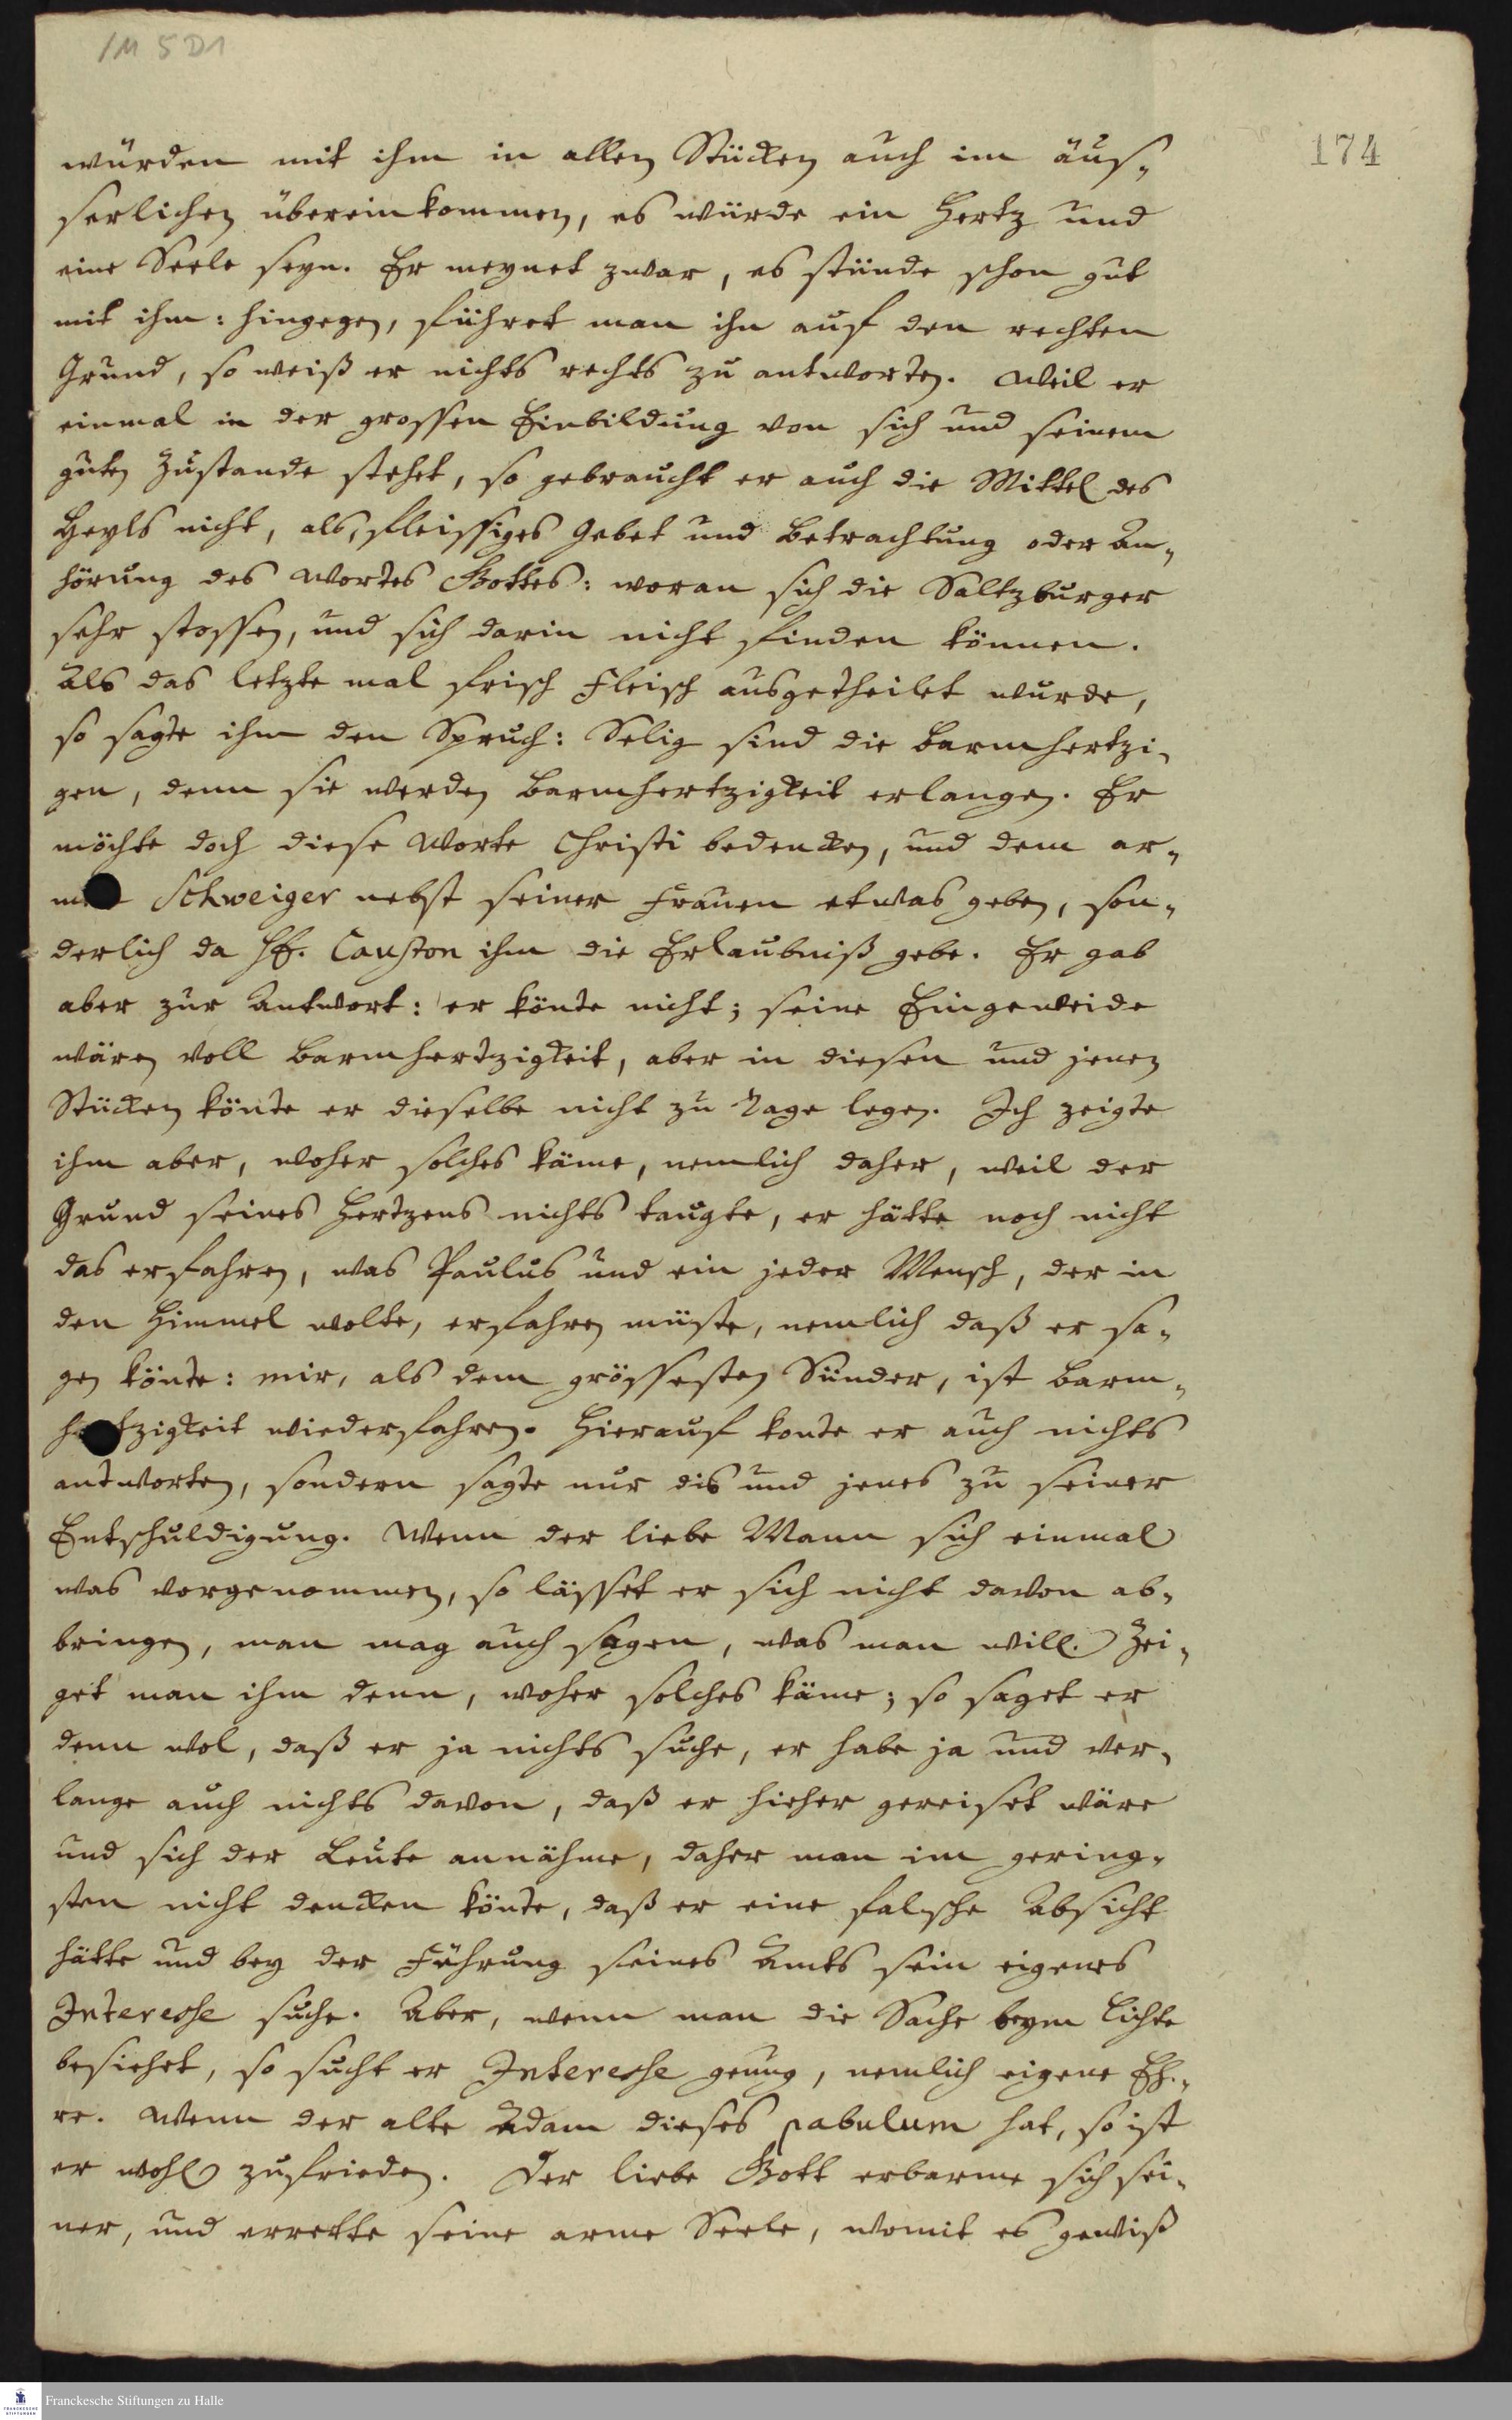 1M 5 D1
174
würden mit ihm in allen Stücken auch im äus-
serlichen übereinkommen, es würde ein Hertz und
eine Seele seyn. Er meynet zwar, es stünde schon gut
mit ihm: hingegen, führet man ihn auf den rechten
Grund, so weiß er nichts rechts zu antworten. Weil er
einmal in der grossen Einbildung von sich und seinem
guten Zustande stehet, so gebraucht er auch die Mittel des
Heyls nicht, als, fleissiges Gebet und Betrachtung oder An-
hörung des Wortes Gottes: woran sich die Saltzburger
sehr stossen, und sich darin nicht finden können.
Als das letzte mal frisch Fleisch ausgetheilet wurde,
so sagte ihm den Spruch: Selig sind die Barmhertzi-
gen, denn sie werden Barmhertzigkeit erlangen. Er
möchte doch diese Worte Christi bedencken, und dem ar-
men Schweiger nebst seiner Frauen etwas geben, son-
derlich da Hr. Causton ihm die Erlaubniß gebe. Er gab
aber zur Antwort: er könte nicht; seine Eingeweide
wären voll Barmhertzigkeit, aber in diesen und jenen
Stücken könte er dieselbe nicht zu Tage legen. Ich zeigte
ihm aber, woher solches käme, nemlich daher, weil der
Grund seines Hertzens nichts taugte, er hätte noch nicht
das erfahren, was Paulus und ein jeder Mensch, der in
den Himmel wolte, erfahren müste, nemlich daß er sa-
gen könte: mir, als dem grössesten Sünder, ist Barm-
hertzigkeit wiederfahren. Hierauf konte er auch nichts
antworten, sondern sagte nur dis und jenes zu seiner
Entschuldigung. Wenn der liebe Mann sich einmal
was vorgenommen, so lässet er sich nicht davon ab-
bringen, man mag auch sagen, was man will. Zei-
get man ihm denn, woher solches käme; so saget er
denn wol, daß er ja nichts suche, er habe ja und ver-
lange auch nichts davon, daß er hieher gereiset wäre
und sich der Leute annähme, daher man im gering-
sten nicht dencken könte, daß er eine falsche Absicht
hätte und bey der Führung seines Amts sein eigenes
Interesse suche. Aber, wenn man die Sache beym Lichte
besiehet, so sucht er Interesse genug, nemlich eigene Eh-
re. Wenn der alte Adam dieses pabulum hat, so ist
er wohl zufrieden. Der liebe Gott erbarme sich sei-
ner, und errette seine arme Seele, womit es gewiß
Franckesche Stiftungen zu Halle
FRANCKESCHE
STIFTUNGEN